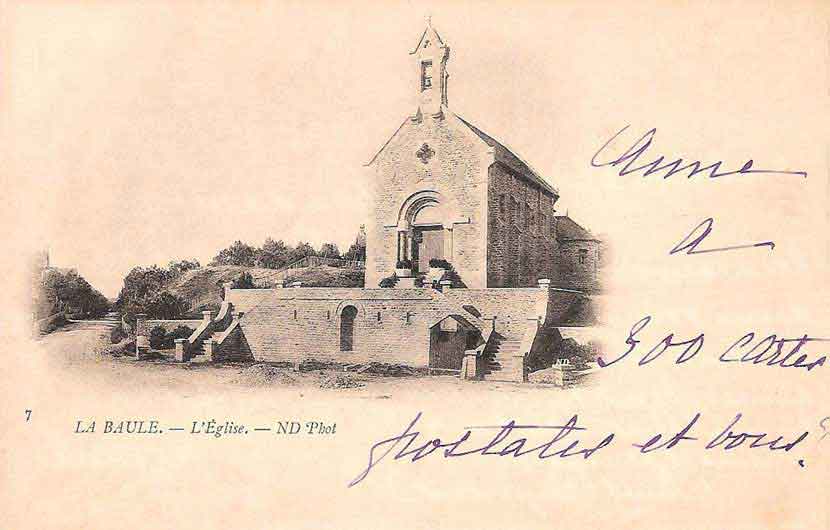 Anne
a
300 cartes
postales et vous
7
LA BAULE. — L'Église. — ND Phot